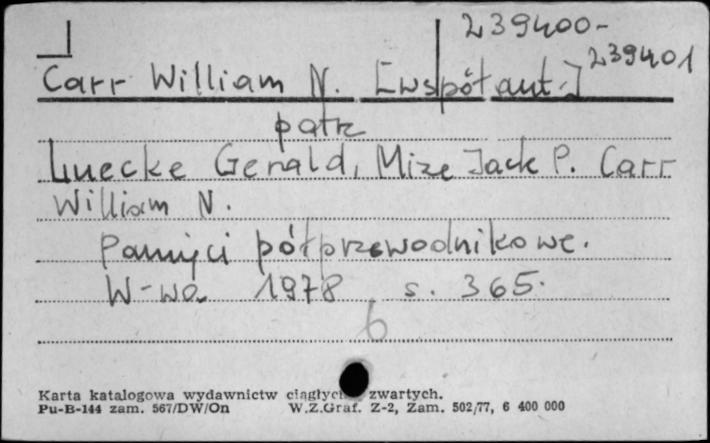 239400-
239401
Carr William N. [współaut.]
patrz
Luecke Gerald, Mize Jack P. Carr
William N.
Pamięci półprzewodnikowe.
W-wa 1978 s. 365.
6
Karta katalogowa wydawnictw ciągłych zwartych.
Pu-B-144 zam. 567/DW/On W.Z.Graf. Z-2, Zam. 502/77, 6 400 000